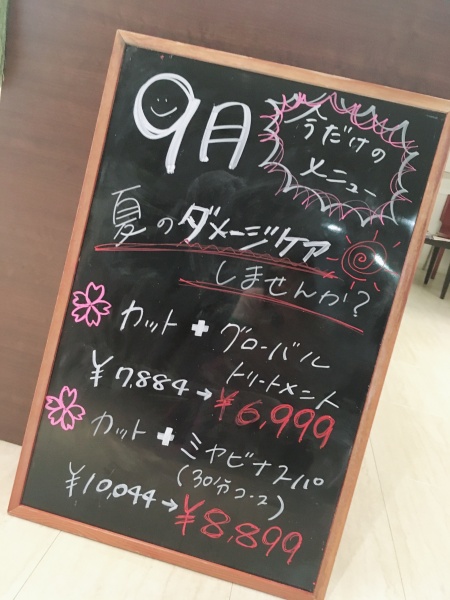 9月
今だけの
メニュー
夏のダメージケア
しませんか?
カット+グローバル
トリートメント
¥7,884→¥6,999
カット+ミヤビナスパ
(30分コース)
¥10,044→¥8,899